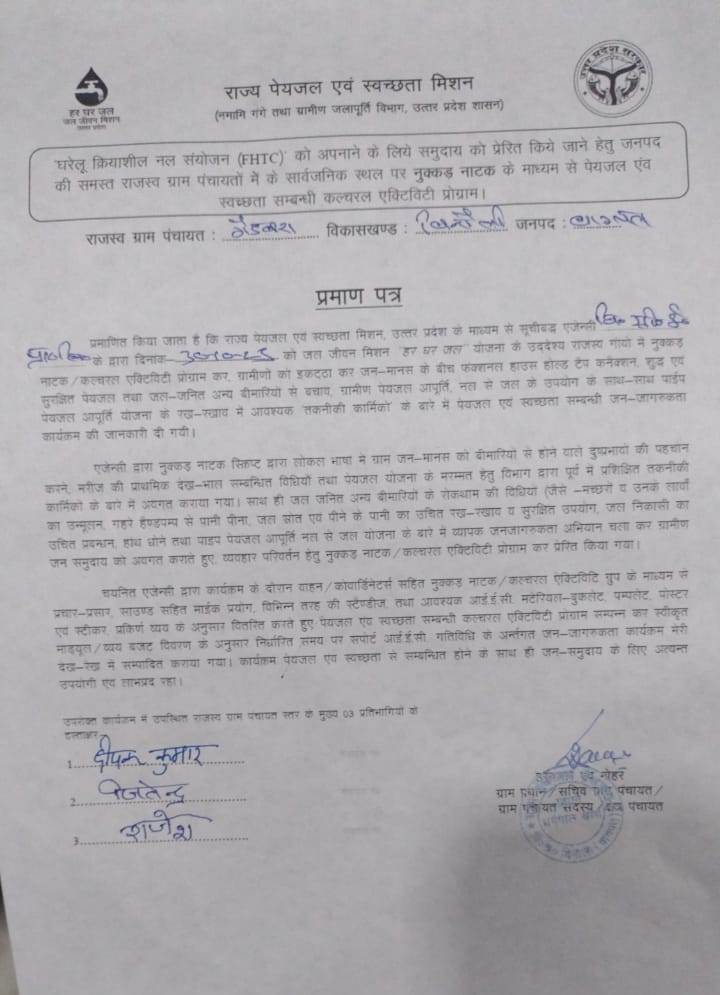 हर घर जल
जल जीवन मिशन
उत्तर प्रदेश
उत्तर प्रदेश सरकार
राज्य पेयजल एवं स्वच्छता मिशन
(नमामि गंगे तथा ग्रामीण जलापूर्ति विभाग, उत्तर प्रदेश शासन)
'घरेलू क्रियाशील नल संयोजन (FHTC)' को अपनाने के लिये समुदाय को प्रेरित किये जाने हेतु जनपद
की समस्त राजस्व ग्राम पंचायतों में के सार्वजनिक स्थल पर नुक्कड़ नाटक के माध्यम से पेयजल एंव
स्वच्छता सम्बन्धी कल्चरल एक्टिविटी प्रोग्राम।
राजस्व ग्राम पंचायत : विकासखण्ड : जनपद : बागपत
प्रमाण पत्र
प्रमाणित किया जाता है कि राज्य पेयजल एवं स्वच्छता मिशन, उत्तर प्रदेश के माध्यम से सूचीबद्ध एजेन्सी
के द्वारा दिनांक को जल जीवन मिशन "हर घर जल" योजना के उद्देश्य राजस्व गांवो में नुक्कड़
नाटक/कल्चरल एक्टिविटी प्रोग्राम कर, ग्रामीणों को इकट्ठा कर जन-मानस के बीच फंक्शनल हाउस होल्ड टैप कनेक्शन, शुद्ध एवं
सुरक्षित पेयजल तथा जल-जनित अन्य बीमारियों से बचाव, ग्रामीण पेयजल आपूर्ति, नल से जल के उपयोग के साथ-साथ पाईप
पेयजल आपूर्ति योजना के रख-रखाव में आवश्यक 'तकनीकी कार्मिकों' के बारे में पेयजल एवं स्वच्छता सम्बन्धी जन-जागरुकता
कार्यक्रम की जानकारी दी गयी।
एजेन्सी द्वारा नुक्कड़ नाटक स्क्रिप्ट द्वारा लोकल भाषा में ग्राम जन-मानस को बीमारियों से होने वाले दुष्प्रभावों की पहचान
करने, मरीज की प्राथमिक देख-भाल सम्बन्धित विधियों तथा पेयजल योजना के मरम्मत हेतु विभाग द्वारा पूर्व में प्रशिक्षित तकनीकी
कार्मिकों के बारे में अवगत कराया गया। साथ ही जल जनित अन्य बीमारियों के रोकथाम की विधियों (जैसे -मच्छरों व उनके लार्वा
का उन्मूलन, गहरे हैण्डपम्प से पानी पीना, जल स्रोत एवं पीने के पानी का उचित रख-रखाव व सुरक्षित उपयोग, जल निकासी का
उचित प्रबन्धन, हाथ धोने तथा पाइप पेयजल आपूर्ति नल से जल योजना के बारे में व्यापक जनजागरुकता अभियान चला कर ग्रामीण
जन समुदाय को अवगत कराते हुए, व्यवहार परिवर्तन हेतु नुक्कड़ नाटक/कल्चरल एक्टिविटी प्रोग्राम कर प्रेरित किया गया।
चयनित एजेन्सी द्वारा कार्यक्रम के दौरान वाहन/कोवार्डिनेटर्स सहित नुक्कड़ नाटक/कल्चरल एक्टिविटि ग्रुप के माध्यम से
प्रचार-प्रसार, साउण्ड सहित माईक प्रयोग, विभिन्न तरह की स्टैण्डीज, तथा आवश्यक आई.ई.सी. मटेरियल-बुकलेट, पम्पलेट, पोस्टर
एवं स्टीकर, प्रकिर्ण व्यय के अनुसार वितरित करते हुए पेयजल एवं स्वच्छता सम्बन्धी कल्चरल एक्टिविटी प्रोग्राम सम्पन्न कर स्वीकृत
माड्यूल/व्यय बजट विवरण के अनुसार निर्धारित समय पर सपोर्ट आई.ई.सी. गतिविधि के अर्न्तगत जन-जागरुकता कार्यक्रम मेरी
देख-रेख में सम्पादित कराया गया। कार्यक्रम पेयजल एवं स्वच्छता से सम्बन्धित होने के साथ ही जन-समुदाय के लिए अत्यन्त
उपयोगी एवं लाभप्रद रहा।
उपरोक्त कार्यक्रम में उपस्थित राजस्व ग्राम पंचायत स्तर के मुख्य 03 प्रतिभागियों के
हस्ताक्षर
1. दीपक कुमार
2. जितेन्द्र
3. राजेश
एवं मोहर
ग्राम प्रधान/सचिव ग्राम पंचायत/
ग्राम पंचायत सदस्य/क्षेत्र पंचायत